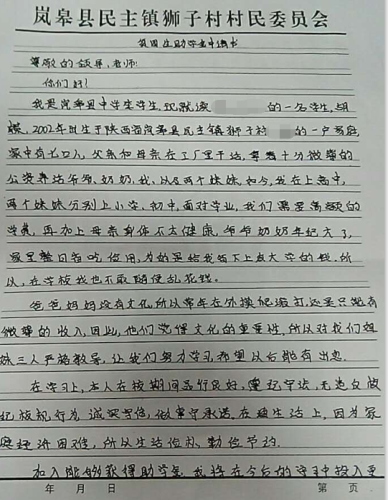 岚皋县民主镇狮子村村民委员会
贫困生助学金申请书
尊敬的领导,老师:
你们好!
我是岚皋县中学生学生,现就读 的一名学生,
2002年出生于陕西省岚皋县民主镇狮子村 的一户家庭
家中有七口人,父亲和母亲在工厂里干活,拿着十分微薄的
公资养活爷爷、奶奶、我、以及两个妹妹,如今,我在上高中,
两个妹妹分别上小学、初中,面对学业,我们需要高额的
学费,再加上母亲身体不太健康,爷爷奶奶年纪大了,
家里整日省吃俭用,为的是给我留下上点大学的钱,所
以,在学校我也不敢随便乱花钱。
爸爸妈妈没有文化,所以常年在外摸爬滚打,还是只能有
微薄的收入,因此,他们觉得文化的重要性,所以对我们姐
妹三人严格教导,让我们努力学习希望以后能有出息。
在学习上,本人在校期间品行良好,遵纪守法,无违反
纪校规行为,诚实守信,做事守承诺。在生活上,因为家
庭经济困难,所以生活俭朴、勤俭节约。
如入能够获得助学金,我将在今后的学习中投入更
年 月 日 第 页